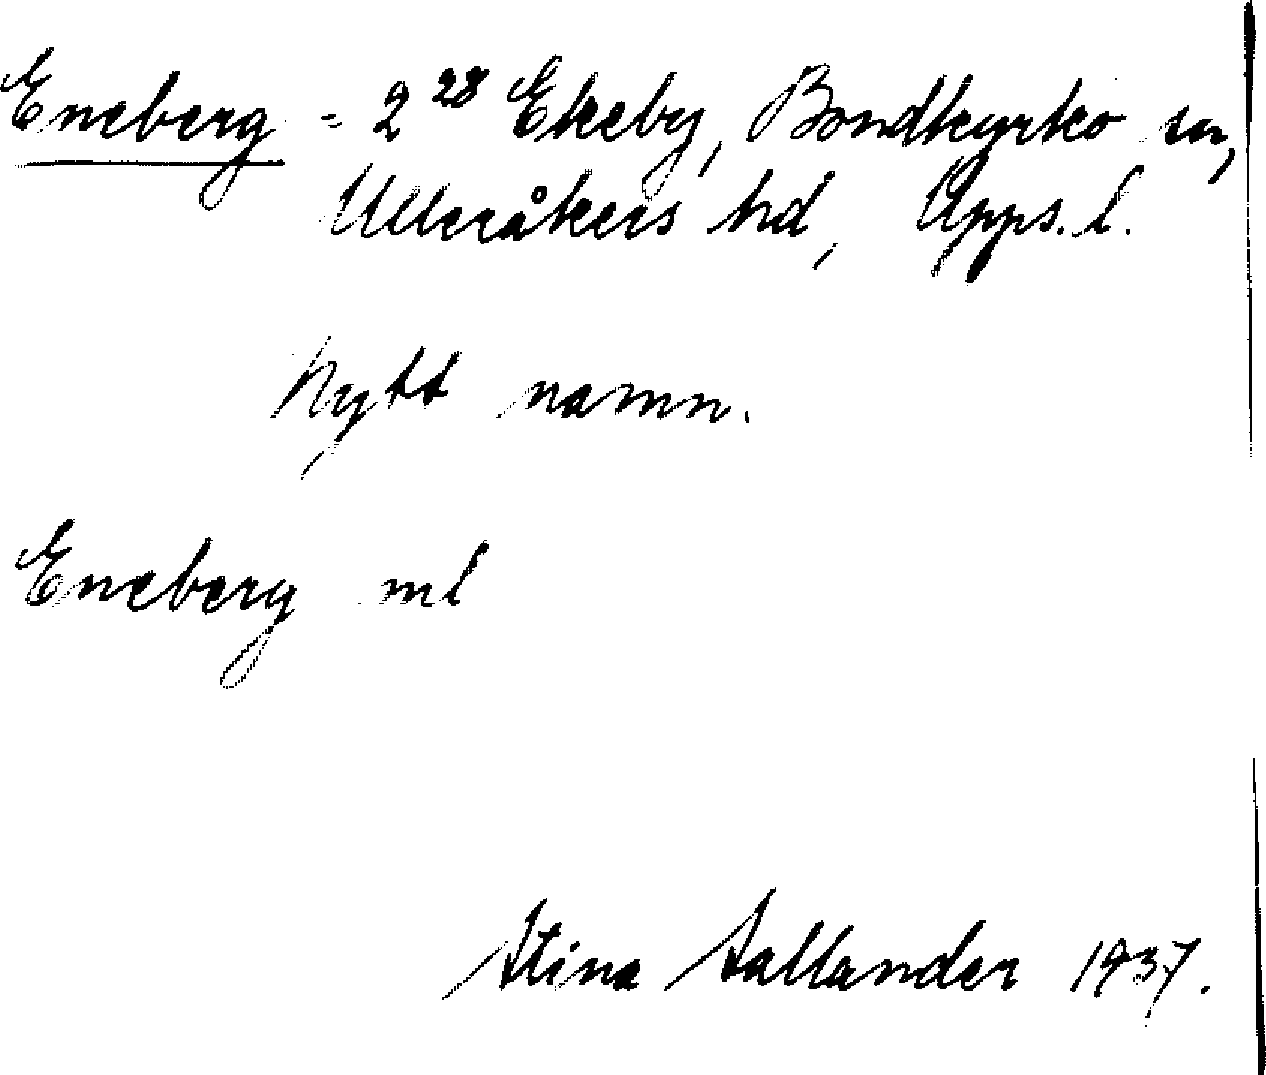 Eneberg = 2²⁸ Ekeby, Bondkyrko sn,
Ulleråkers hd, Upps. l.
Nytt namn.
Eneberg ml
Stina Sallander 1937.